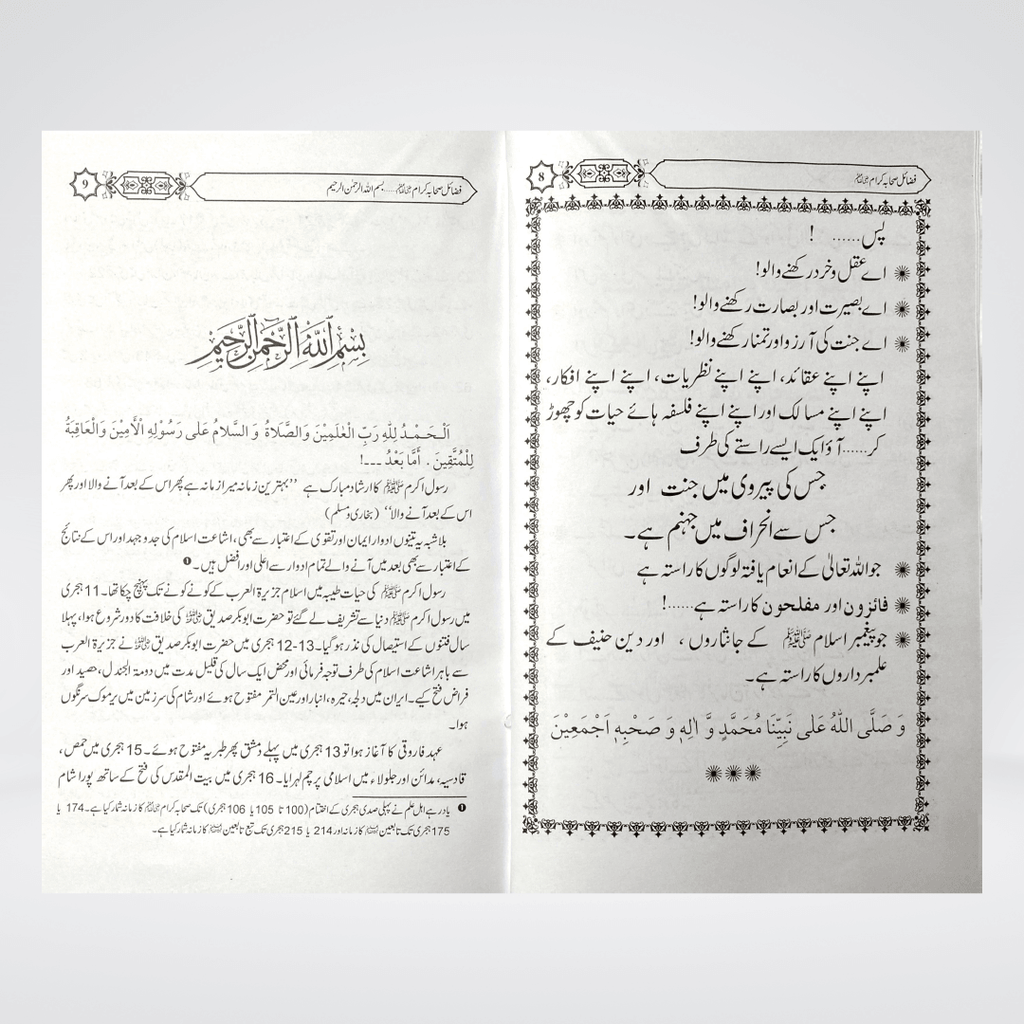 فضائل صحابہ کرام رضی اللہ عنہم
8
پس...... !
اے عقل وخرد رکھنے والو!
اے بصیرت اور بصارت رکھنے والو!
اے جنت کی آرزو اور تمنا رکھنے والو!
اپنے اپنے عقائد، اپنے اپنے نظریات، اپنے اپنے افکار،
اپنے اپنے مسالک اور اپنے اپنے فلسفہ ہائے حیات کو چھوڑ
کر......آؤ ایک ایسے راستے کی طرف
جس کی پیروی میں جنت اور
جس سے انحراف میں جہنم ہے۔
جو اللہ تعالیٰ کے انعام یافتہ لوگوں کا راستہ ہے
فائزون اور مفلحون کا راستہ ہے......!
جو پیغمبر اسلام ﷺ کے جانثاروں ، اور دین حنیف کے
علمبرداروں کا راستہ ہے۔
وَ صَلَّى اللهُ عَلٰى نَبِيِّنَا مُحَمَّدٍ وَّ اٰلِهٖ وَ صَحْبِهٖ اَجْمَعِيْنَ
فضائل صحابہ کرام رضی اللہ عنہم ..... بسم اللہ الرحمٰن الرحیم
9
بِسْمِ اللّٰهِ الرَّحْمٰنِ الرَّحِيْمِ
اَلْحَمْدُ لِلّٰهِ رَبِّ الْعٰلَمِيْنَ وَالصَّلَاةُ وَ السَّلَامُ عَلٰى رَسُوْلِهِ الْأَمِيْنَ وَالْعَاقِبَةُ
لِلْمُتَّقِيْنَ . أَمَّا بَعْدُ ---!
رسول اکرم ﷺ کا ارشاد مبارک ہے ’’بہترین زمانہ میرا زمانہ ہے پھر اس کے بعد آنے والا اور پھر
اس کے بعد آنے والا‘‘ (بخاری ومسلم)
بلاشبہ یہ تینوں ادوار ایمان اور تقوی کے اعتبار سے بھی، اشاعت اسلام کی جدوجہد اور اس کے نتائج
کے اعتبار سے بھی بعد میں آنے والے تمام ادوار سے اعلی اور افضل ہیں۔ ❶
رسول اکرم ﷺ کی حیات طیبہ میں اسلام جزیرۃ العرب کے کونے کونے تک پہنچ چکا تھا۔ 11 ہجری
میں رسول اکرم ﷺ دنیا سے تشریف لے گئے تو حضرت ابوبکر صدیق رضی اللہ عنہ کی خلافت کا دور شروع ہوا، پہلا
سال فتنوں کے استیصال کی نذر ہوگیا۔ 13-12 ہجری میں حضرت ابوبکر صدیق رضی اللہ عنہ نے جزیرۃ العرب
سے باہر اشاعت اسلام کی طرف توجہ فرمائی اور محض ایک سال کی قلیل مدت میں دومۃ الجندل، حصید اور
فراض فتح کیے۔ ایران میں دجلہ، حیرہ، انبار اور عین التمر مفتوح ہوئے اور شام کی سرزمین میں یرموک سرنگوں
ہوا۔
عہد فاروقی کا آغاز ہوا تو 13 ہجری میں پہلے دمشق پھر طبریہ مفتوح ہوئے۔ 15 ہجری میں حمص،
قادسیہ، مدائن اور جلولاء میں اسلامی پرچم لہرایا۔ 16 ہجری میں بیت المقدس کی فتح کے ساتھ پورا شام
❶ یاد رہے اہل علم نے پہلی صدی ہجری کے اختتام (100 تا 105 یا 106 ہجری) تک صحابہ کرام رضی اللہ عنہم کا زمانہ شمار کیا ہے۔ 174 یا
175 ہجری تک تابعین رحمہم اللہ کا زمانہ اور 214 یا 215 ہجری تک تبع تابعین رحمہم اللہ کا زمانہ شمار کیا ہے۔